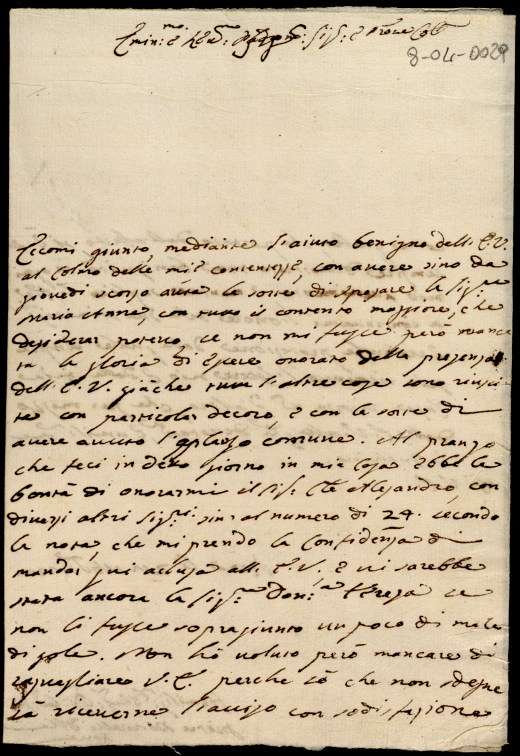 8-04-0029
Emin:mo e Rev:mo Sig:r e Prone Col:
Eccomi giunto, mediante l'aiuto benigno dell'E.V.
al colmo delle mie contentezze, con avere sino da
giovedì scorso avuta la sorte di sposare la Sig.ra
Maria Anna, con tutto il contento maggiore, che
desiderar potevo, se non mi fusse però manca
ta la gloria di essere onorato della presenza
dell'E.V. giache tutte l'altre cose sono riusci
te con particolar decoro, e con la sorte di
avere avuto l'aplauso comune. Al pranzo
che feci in detto giorno in mia casa ebbe la
bontà di onorarmi il Sig:r C:te Alesandro, con
diversi altri Sig:ri sin' al numero di 24. secondo
la nota, che mi prendo la confidenza di
mandar qui acclusa all'E.V. e vi sarebbe
stata ancora la Sig:ra Don:a Teresa se
non li fusse sopragiunto un poco di male
di gola. Non hò voluto però mancare di
raguagliare V.E. perche sò che non sdegne
rà riceverne l'aviso con sodisfazione